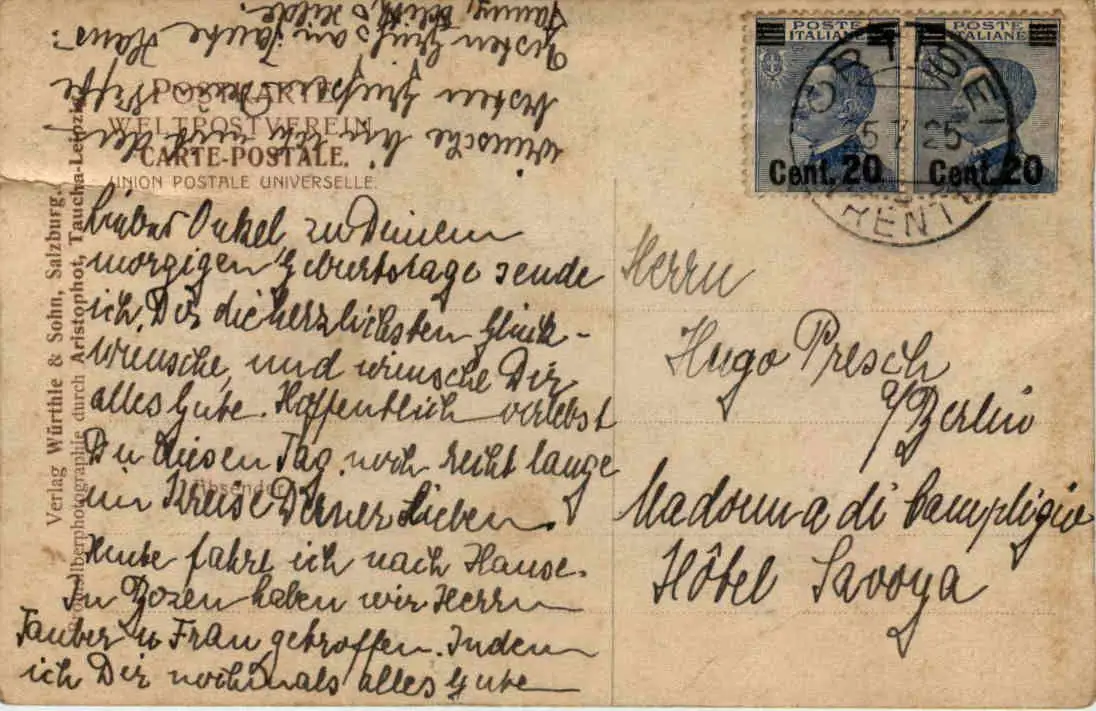 POSTKARTE
WELTPOSTVEREIN
CARTE-POSTALE.
UNION POSTALE UNIVERSELLE.
Verlag Würthle & Sohn, Salzburg.
Bromsilberphotographie durch Aristophot, Taucha-Leipzig
Absender
POSTE ITALIANE
Cent. 20
POSTE ITALIANE
Cent. 20
ORTISEI
5.7.25
TRENTO
Lieber Onkel zu Deinem
morgigen Geburtstage sende
ich Dir die herzlichsten Glück-
wünsche, und wünsche Dir
alles Gute. Hoffentlich verlebst
Du diesen Tag noch recht lange
im Kreise Deiner Lieben.
Heute fahrt ich nach Hause.
In Bozen haben wir Herrn
Tauber u Frau getroffen. Indem
ich Dir nochmals alles Gute
wünsche bin ich mit den
besten Grüssen Dein Neffe
Besten Gruss an Tante Hans
Hilde.
Herrn
Hugo Presch
a/Berlin
Madonna di Campliglio
Hôbel Savoya